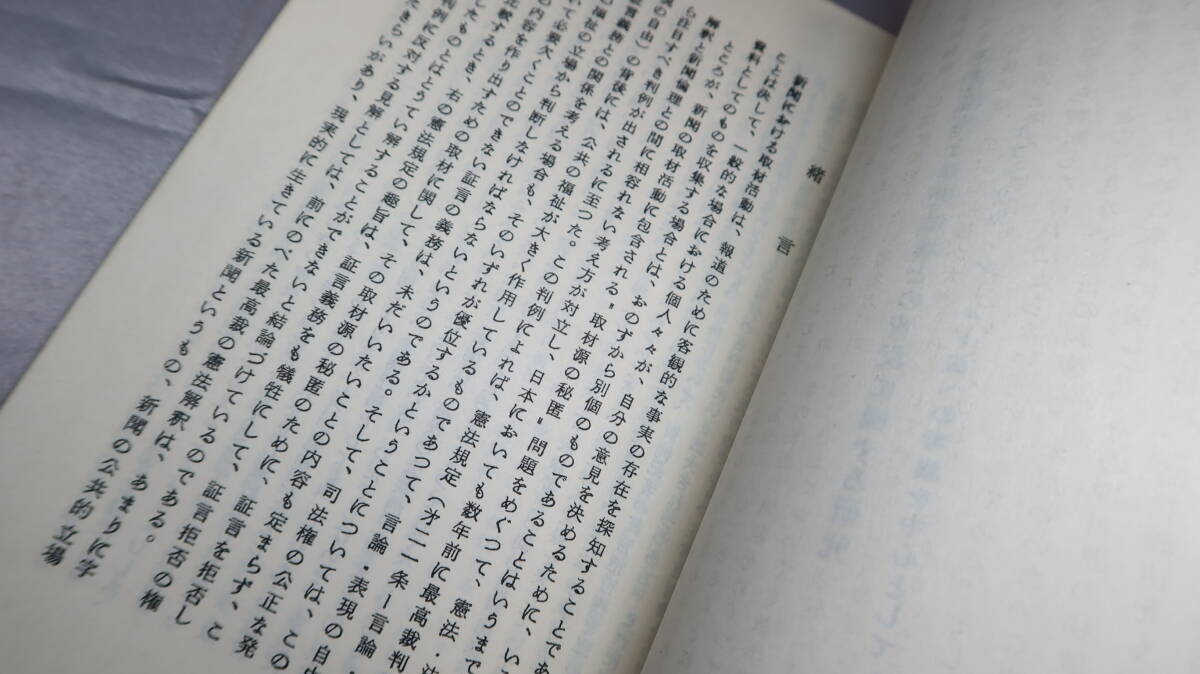 緒言
新聞における取材活動は、報道のために客観的な事実の存在を探知することであ
ることは伏して、一般的な場合における個人々々が、自分の意見を決めるために、い
資料としてのものを収集する場合とは、おのずから別個のものであることはいうまで
ところが、新聞の取材活動に包含される〝取材源の秘匿〟問題をめぐつて、憲法・法
解釈と新聞倫理との間に相容れない考え方が対立し、日本においても数年前に最高裁判
ら注目すべき判例が出されるに至つた。この判例によれば、憲法規定(才二一条ー言論・
現の自由)の背後には、公共の福祉が大きく作用しているものであつて、言論・表現の自由
証言義務との関係を考える場合も、そのいずれが優位するかということについては、この
の福祉の立場から判断しなければならないというのである。そして、司法権の公正な発
いて必要欠くことのできない証言の義務は、未だいいたいことの内容も定まらず、こ
の内容を作り出すための取材に関して、その取材源の秘匿のために、証言を拒否し
比較するとき、右の憲法規定の趣旨は、証言義務をも犠牲にして、証言拒否の権
したものとはとうてい解することができないと結論づけているのである。
判例に反対する見解としては、前にのべた最高裁の憲法解釈は、あまりに字
たきらいがあり、現実的に生きている新聞というもの、新聞の公共的立場